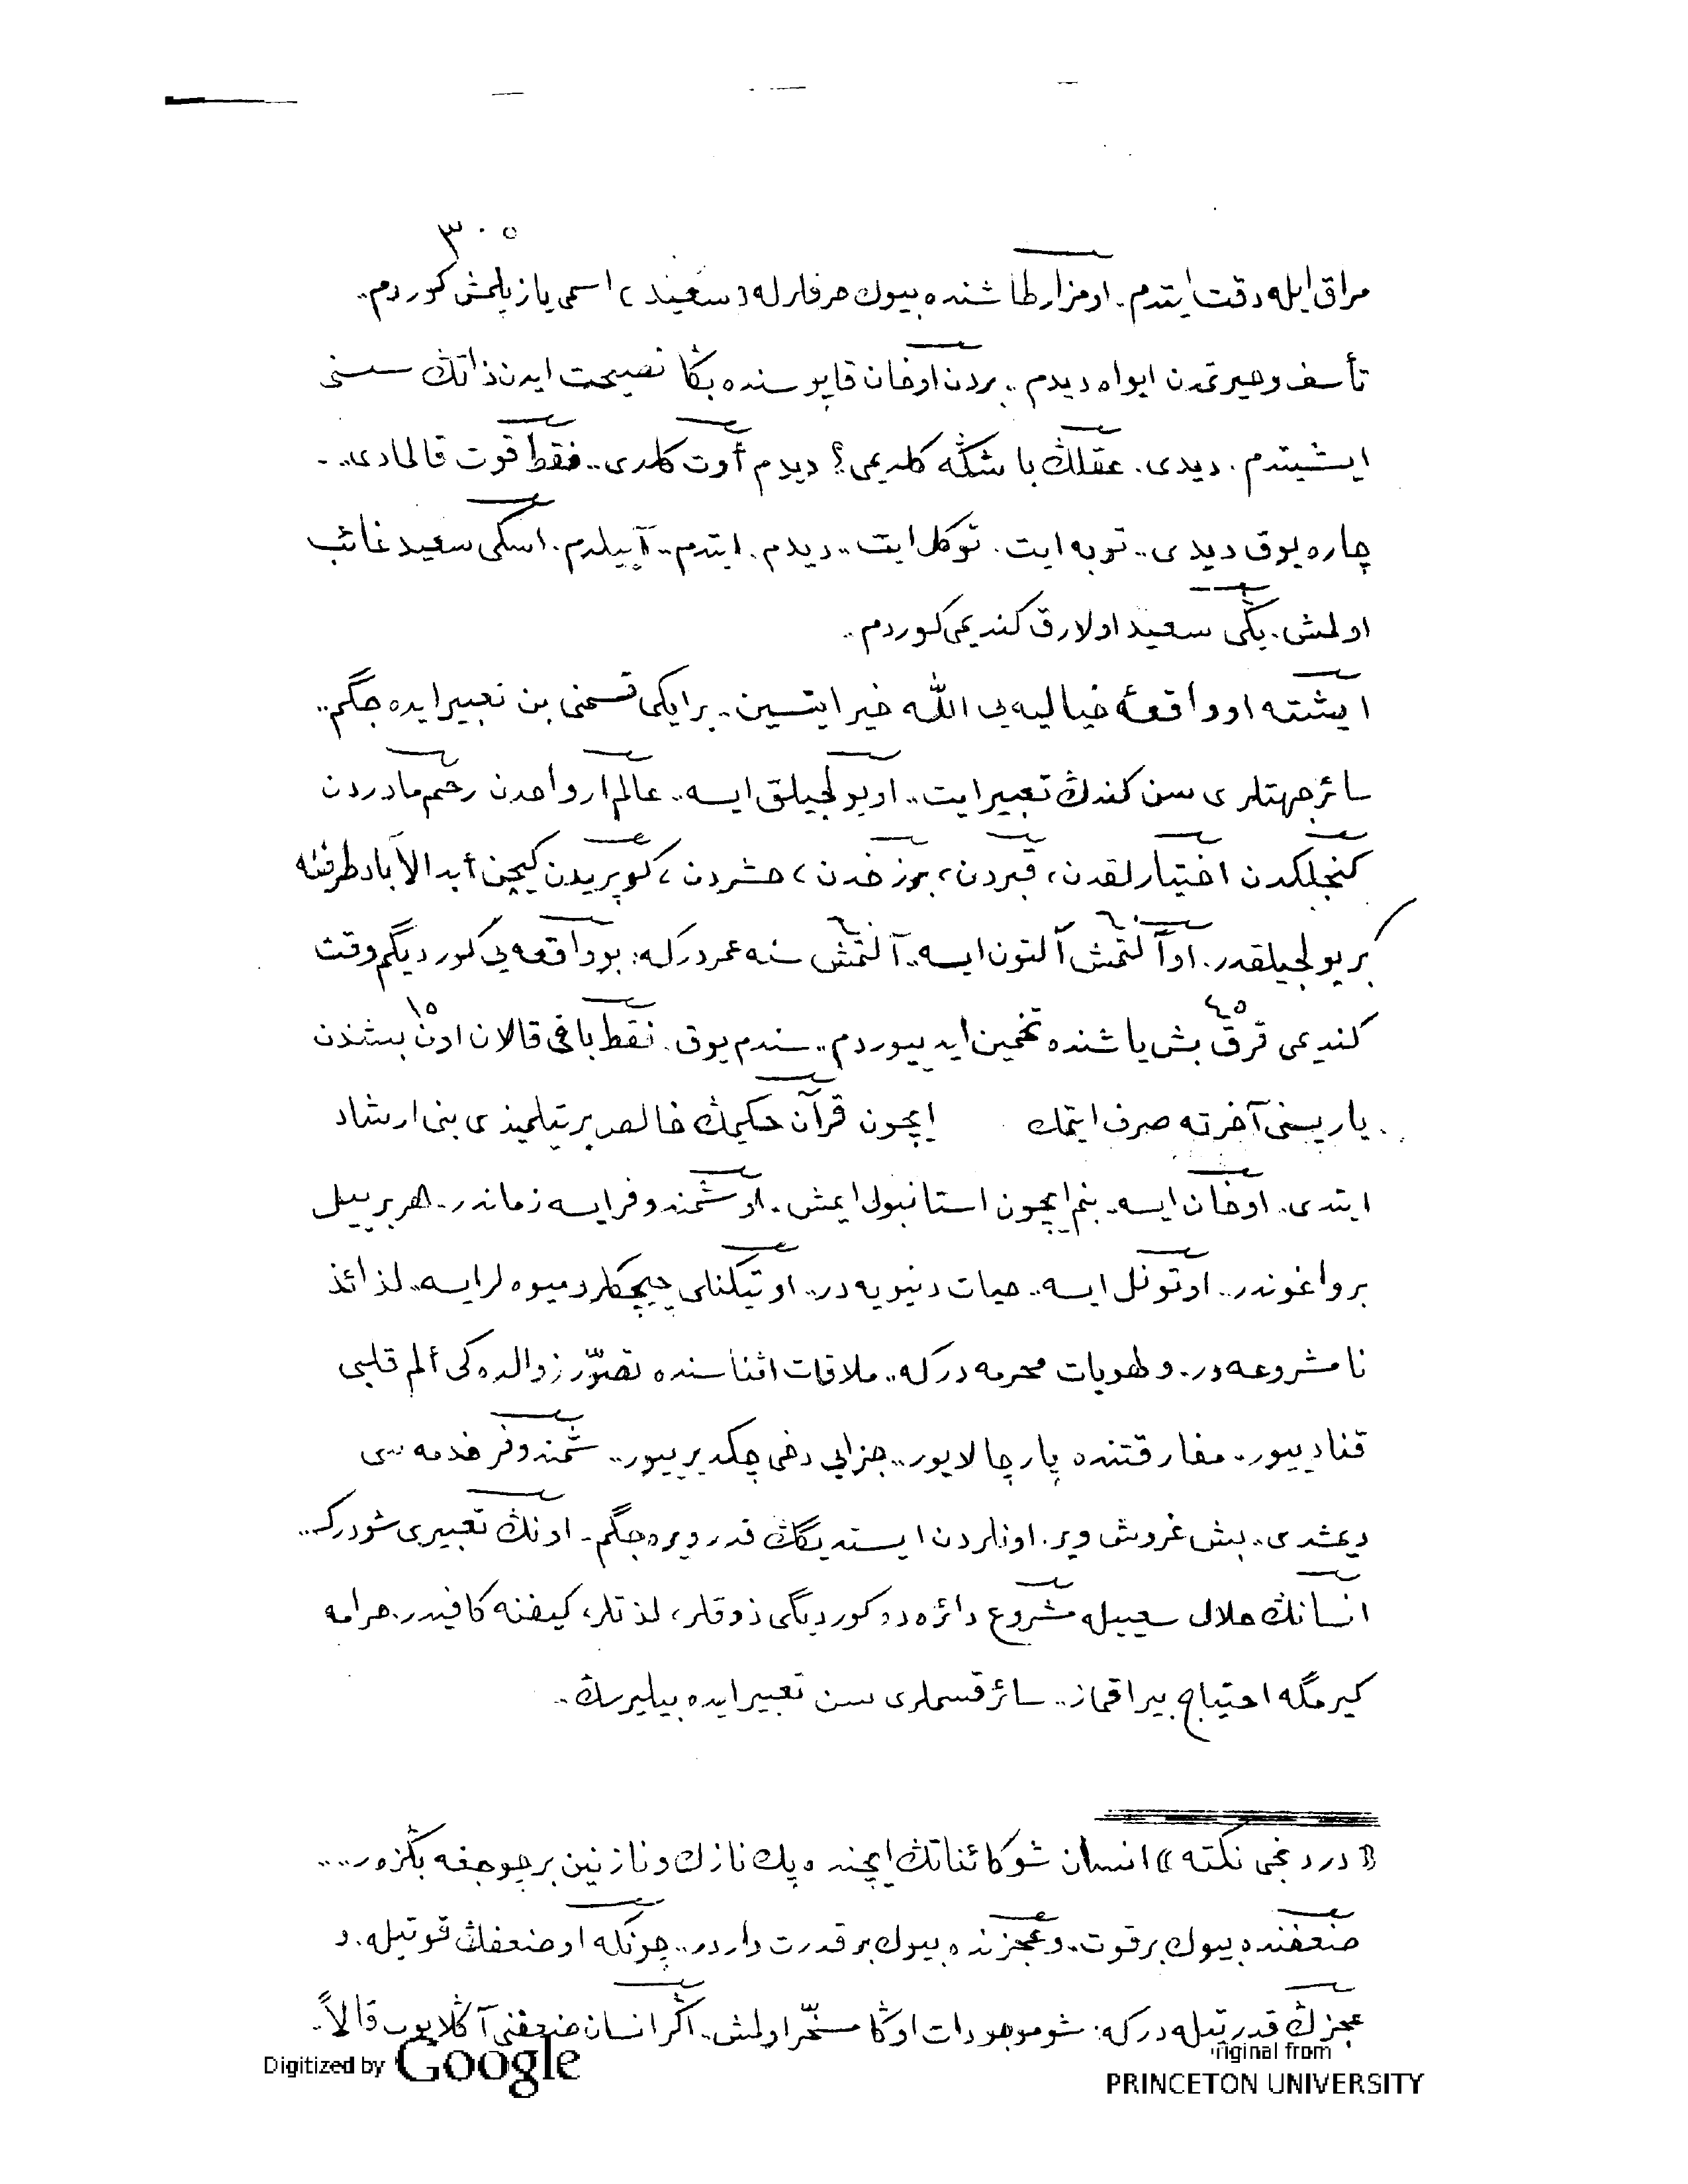 ٣٠٥
مراق ايله دقت ايتدم. او مزار طاشنده بيوك حرفلرله (سعيد) اسمى يازيلمش كوردم..
تأسف وحيرتمدن ايواه ديدم.. بردن او خان قاپوسنده بڭا نصيحت ايدن ذاتڭ سسنى
ايشيتدم. ديدى. عقلڭ باشڭه كلديمى؟ ديدم أوت كلدى.. فقط قوت قالمادى..
چاره يوق ديدى.. توبه ايت. توكل ايت.. ديدم. ايتدم.. آييلدم. اسكى سعيد غائب
اولمش. يڭى سعيد اولارق كنديمى كوردم..
ايشته او واقعۀ خياليه يى الله خير ايتسين.. بر ايكى قسمنى بن تعبير ايده جگم..
سائر جهتلرى سن كندڭ تعبير ايت.. او يولجيلق ايسه.. عالم ارواحدن رحم مادردن
كنجلكدن اختيارلقدن، قبردن، برزخدن، حشردن، كوپريدن كيچن أبد الآباد طرفنه
بر يولجيلقدر. او آلتمش آلتون ايسه.. آلتمش سنه عمردركه: بو واقعه يى كورديگم وقت
٦٠ ٦٠
كنديمى قرق بش ياشنده تخمين ايدييوردم.. سندم يوق. فقط باقى قالان اون بشندن
٤٥ ١٥
ياريسنى آخرته صرف ايتمك ايچون قرآن حكيمڭ خالص بر تيلميذى بنى ارشاد
ايتدى. او خان ايسه.. بنم ايچون استانبول ايمش. او شمندوفر ايسه زماندر. هر بر ييل
بر واغوندر.. او تونل ايسه.. حيات دنيويه در.. او تيكنلى چيچكلر و ميوه لر ايسه.. لذائذ
نامشروعه در. و لهويات محرمه دركه.. ملاقات اثناسنده تصوّر زوالده كى ألم قلبى
قنادييور. مفارقتنده پارچالايور.. جزايى دخى چكديرييور.. شمندوفر خدمه سى
ديمشدى.. بش غروش وير. اونلردن ايستديگڭ قدر ويره جگم. اونڭ تعبيرى شودركه..
انسانڭ حلال سعييله مشروع دائره ده كورديگى ذوقلر، لذتلر، كيفنه كافيدر. حرامه
كيرمگه احتياج بيراقماز.. سائر قسملرى سن تعبير ايده بيليرسڭ..
(( دردنجى نكته )) انسان شو كائناتڭ ايچنده پك نازك و نازنين بر چوجغه بڭزر....
ضعفنده بيوك بر قوت.. و عجزنده بيوك بر قدرت واردر.. چونكه او ضعفڭ قوتيله. و
عجزڭ قدرتيله دركه: شو موجودات اوڭا مسخّر اولمش. اگر انسان ضعفنى آڭلايوب قالاً.
Digitized by Google
Original from
PRINCETON UNIVERSITY